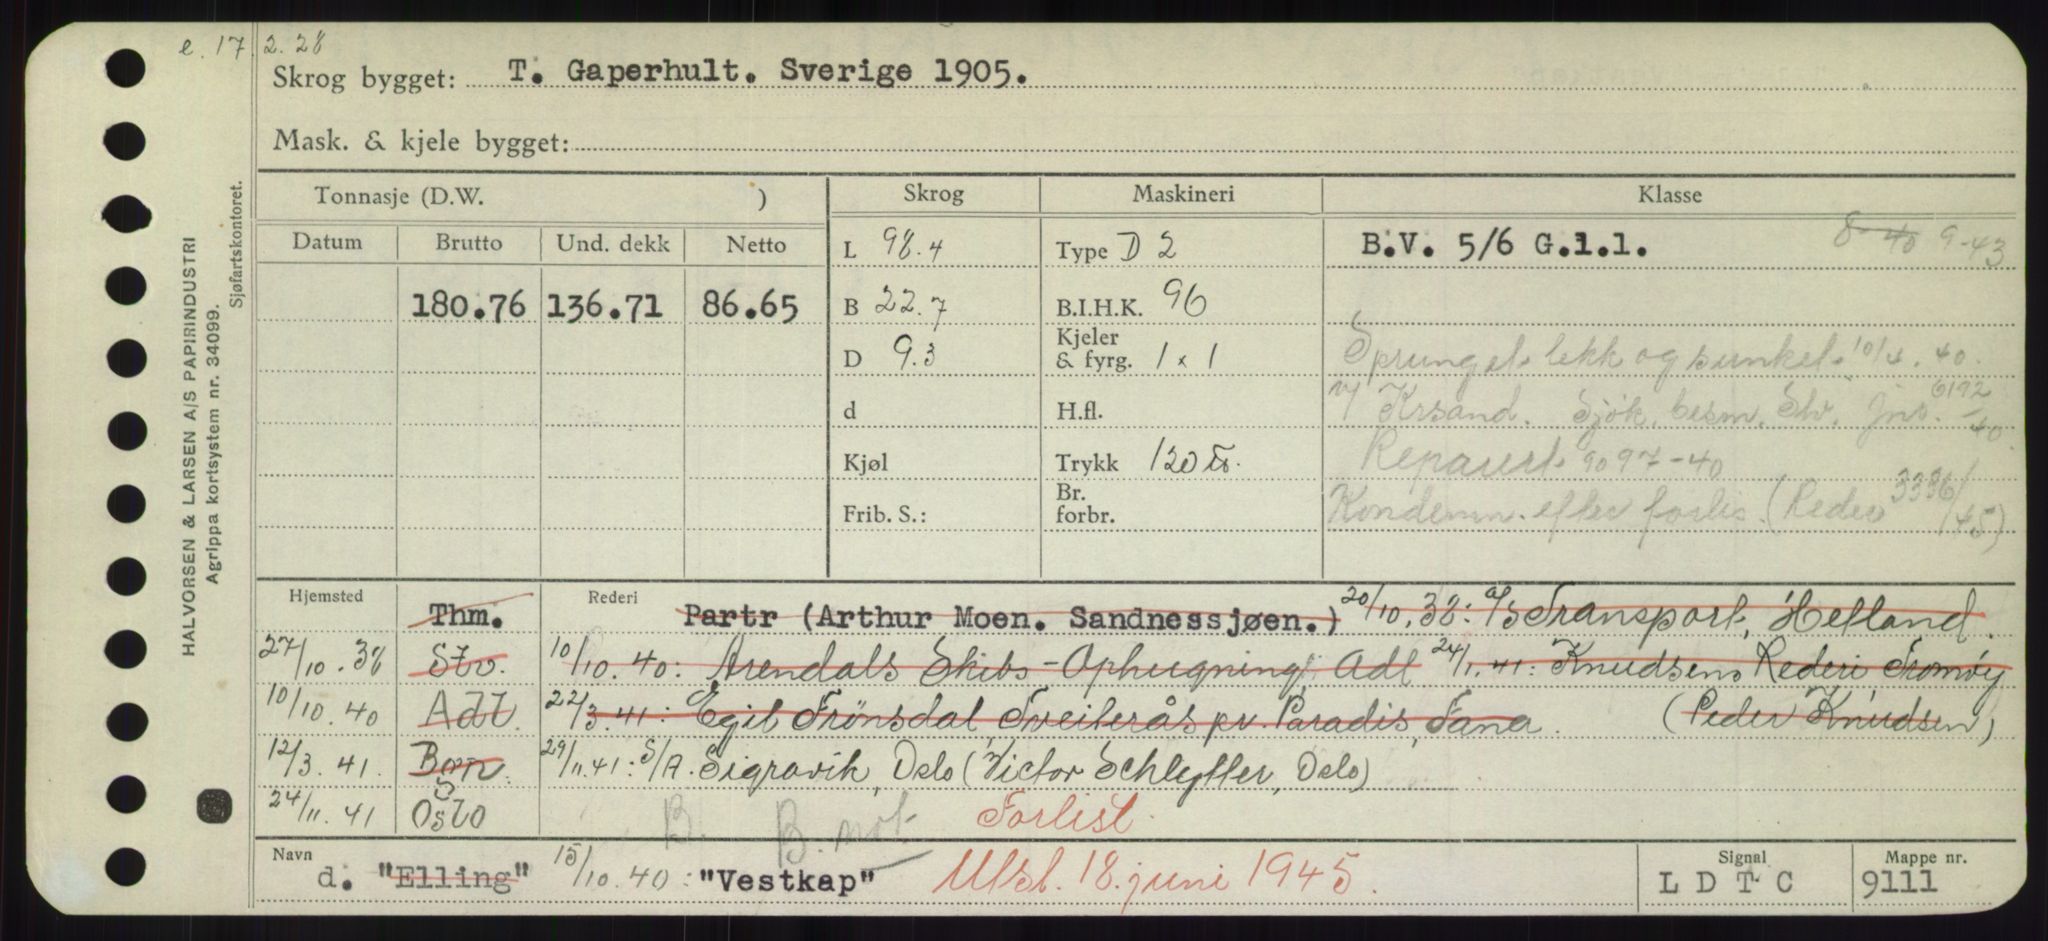 e. 17. 2. 28
Skrog bygget: T. Gaperhult. Sverige 1905.
Mask. & kjele bygget:
HALVORSEN & LARSEN A/S PAPIRINDUSTRI
Agrippa kortsystem nr. 34099.
Sjøfartskontoret.
Tonnasje (D.W. ) Skrog Maskineri Klasse
Datum Brutto Und. dekk Netto L 98.4 Type D 2 B.V. 5/6 G.1.1. 8-40 9-43
180.76 136.71 86.65 B 22.7 B.I.H.K. 96
D 9.3 Kjeler & fyrg. 1 x 1 Sprunget lekk og sunket 10/4.40.
d H.fl. v/ Krsand. Sjøk. besm. Stv. jnr. 6192/40
Kjøl Trykk 120 Reparert 9097-40
Frib. S.: Br. forbr. Kondemn. efter forlis. (Reder 3336/45)
Hjemsted Thm. Rederi Partr (Arthur Moen. Sandnessjøen.) 20/10.38: A/S Transport, Hetland.
27/10.38 Stv. 10/10.40: Arendals Skibs-Ophugning, Adl 24/1.41: Knudsens Rederi Tromøy
10/10.40 Adl. 22/3.41: Egil Frønsdal, Tveiterås pr. Paradis, Fana. (Peder Knudsen)
12/3.41. Bgn. 29/11.41: S/A. Sigravik, Oslo (Victor Schlytter, Oslo)
24/11.41 Oslo B. B. not Forlist.
Navn d. "Elling" 15/10.40: "Vestkap" Utsl. 18. juni 1945. Signal L D T C Mappe nr. 9111